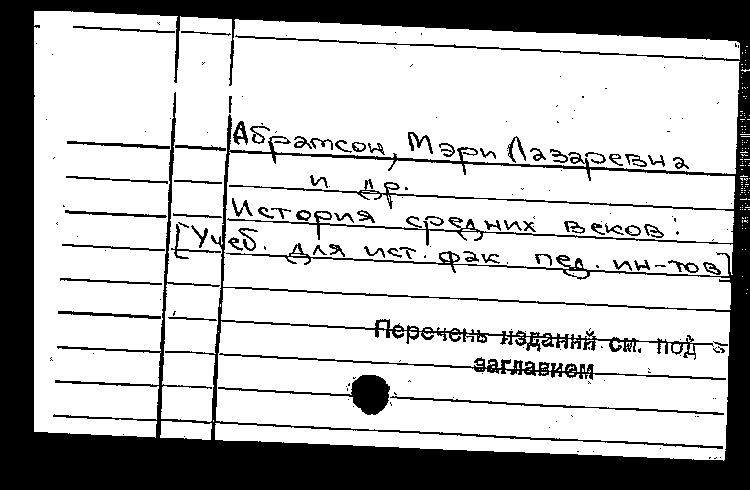 Абрамсон, Мэри Лазаревна
и др.
История средних веков:
[Учеб. для ист. фак. пед. ин-тов]
Перечень изданий см. под
заглавием